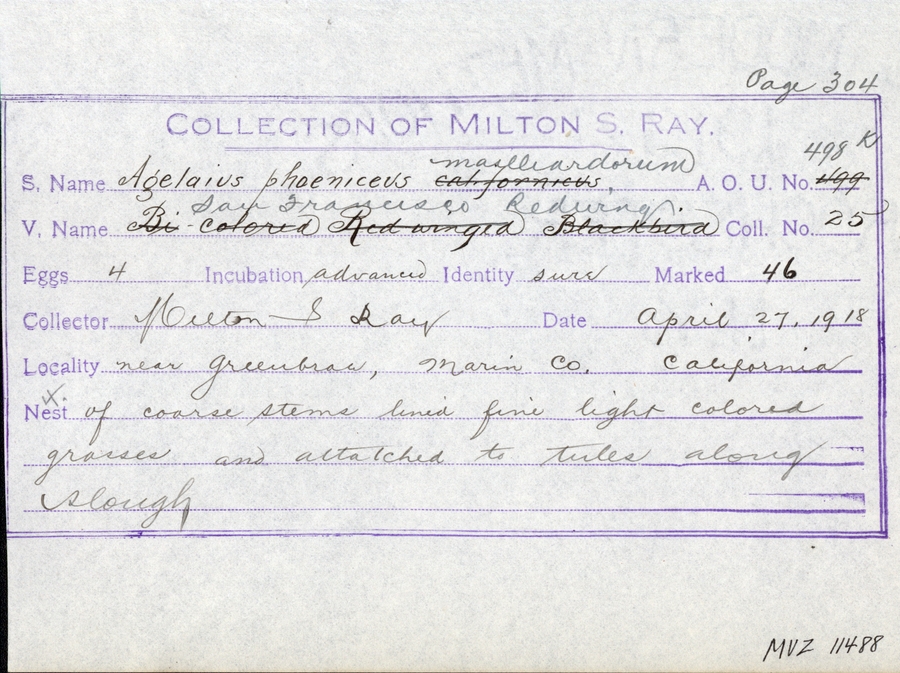 Page 304
COLLECTION OF MILTON S. RAY.
mailliardorum 498 K
S. Name Agelaius phoeniceus californicus, A. O. U. No. 499
San Francisco Redwing
V. Name Bi-colored Red-winged Blackbird Coll. No. 25
Eggs 4 Incubation advanced Identity sure Marked 46
Collector Milton S Ray Date April 27, 1918
Locality near Greenbrae, Marin Co. California
x
Nest of coarse stems lined fine light colored
grasses and attatched to tules along
slough
MVZ 11488